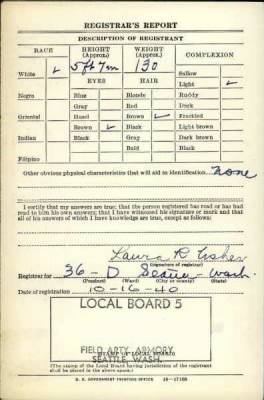 REGISTRAR'S REPORT
DESCRIPTION OF REGISTRANT
RACE HEIGHT (Approx.) WEIGHT (Approx.) COMPLEXION
White ✓ 5 ft 7 in 130 Sallow
EYES HAIR Light ✓
Negro Blue Blonde Ruddy
Gray Red Dark
Oriental Hazel Brown ✓ Freckled
Brown ✓ Black Light brown
Indian Black Gray Dark brown
Bald Black
Filipino
Other obvious physical characteristics that will aid in identification None
I certify that my answers are true; that the person registered has read or has had
read to him his own answers; that I have witnessed his signature or mark and that
all of his answers of which I have knowledge are true, except as follows:
Laura R
(Signature of registrar)
Registrar for 36 - D Seattle - Wash.
(Precinct) (Ward) (City or county) (State)
Date of registration 10-16-40
LOCAL BOARD 5
FIELD ARTY. ARMORY
STAMP OF LOCAL BOARD
SEATTLE, WASH.
(The stamp of the Local Board having jurisdiction of the registrant
shall be placed in the above space.)
U. S. GOVERNMENT PRINTING OFFICE 16-17105